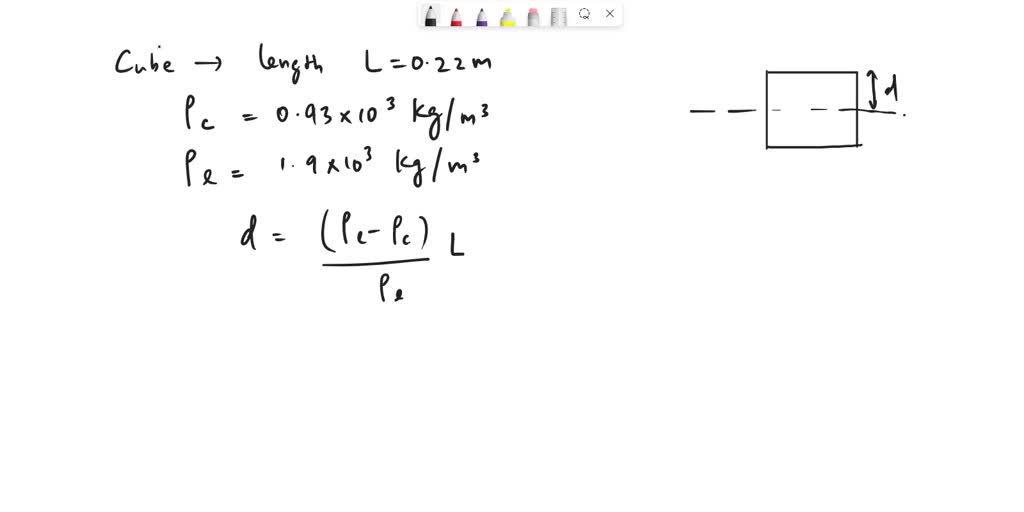 Cube → length L = 0.22 m
ρc = 0.93 × 10³ kg/m³
ρℓ = 1.9 × 10³ kg/m³
d = (ρℓ - ρc) / ρℓ L
d